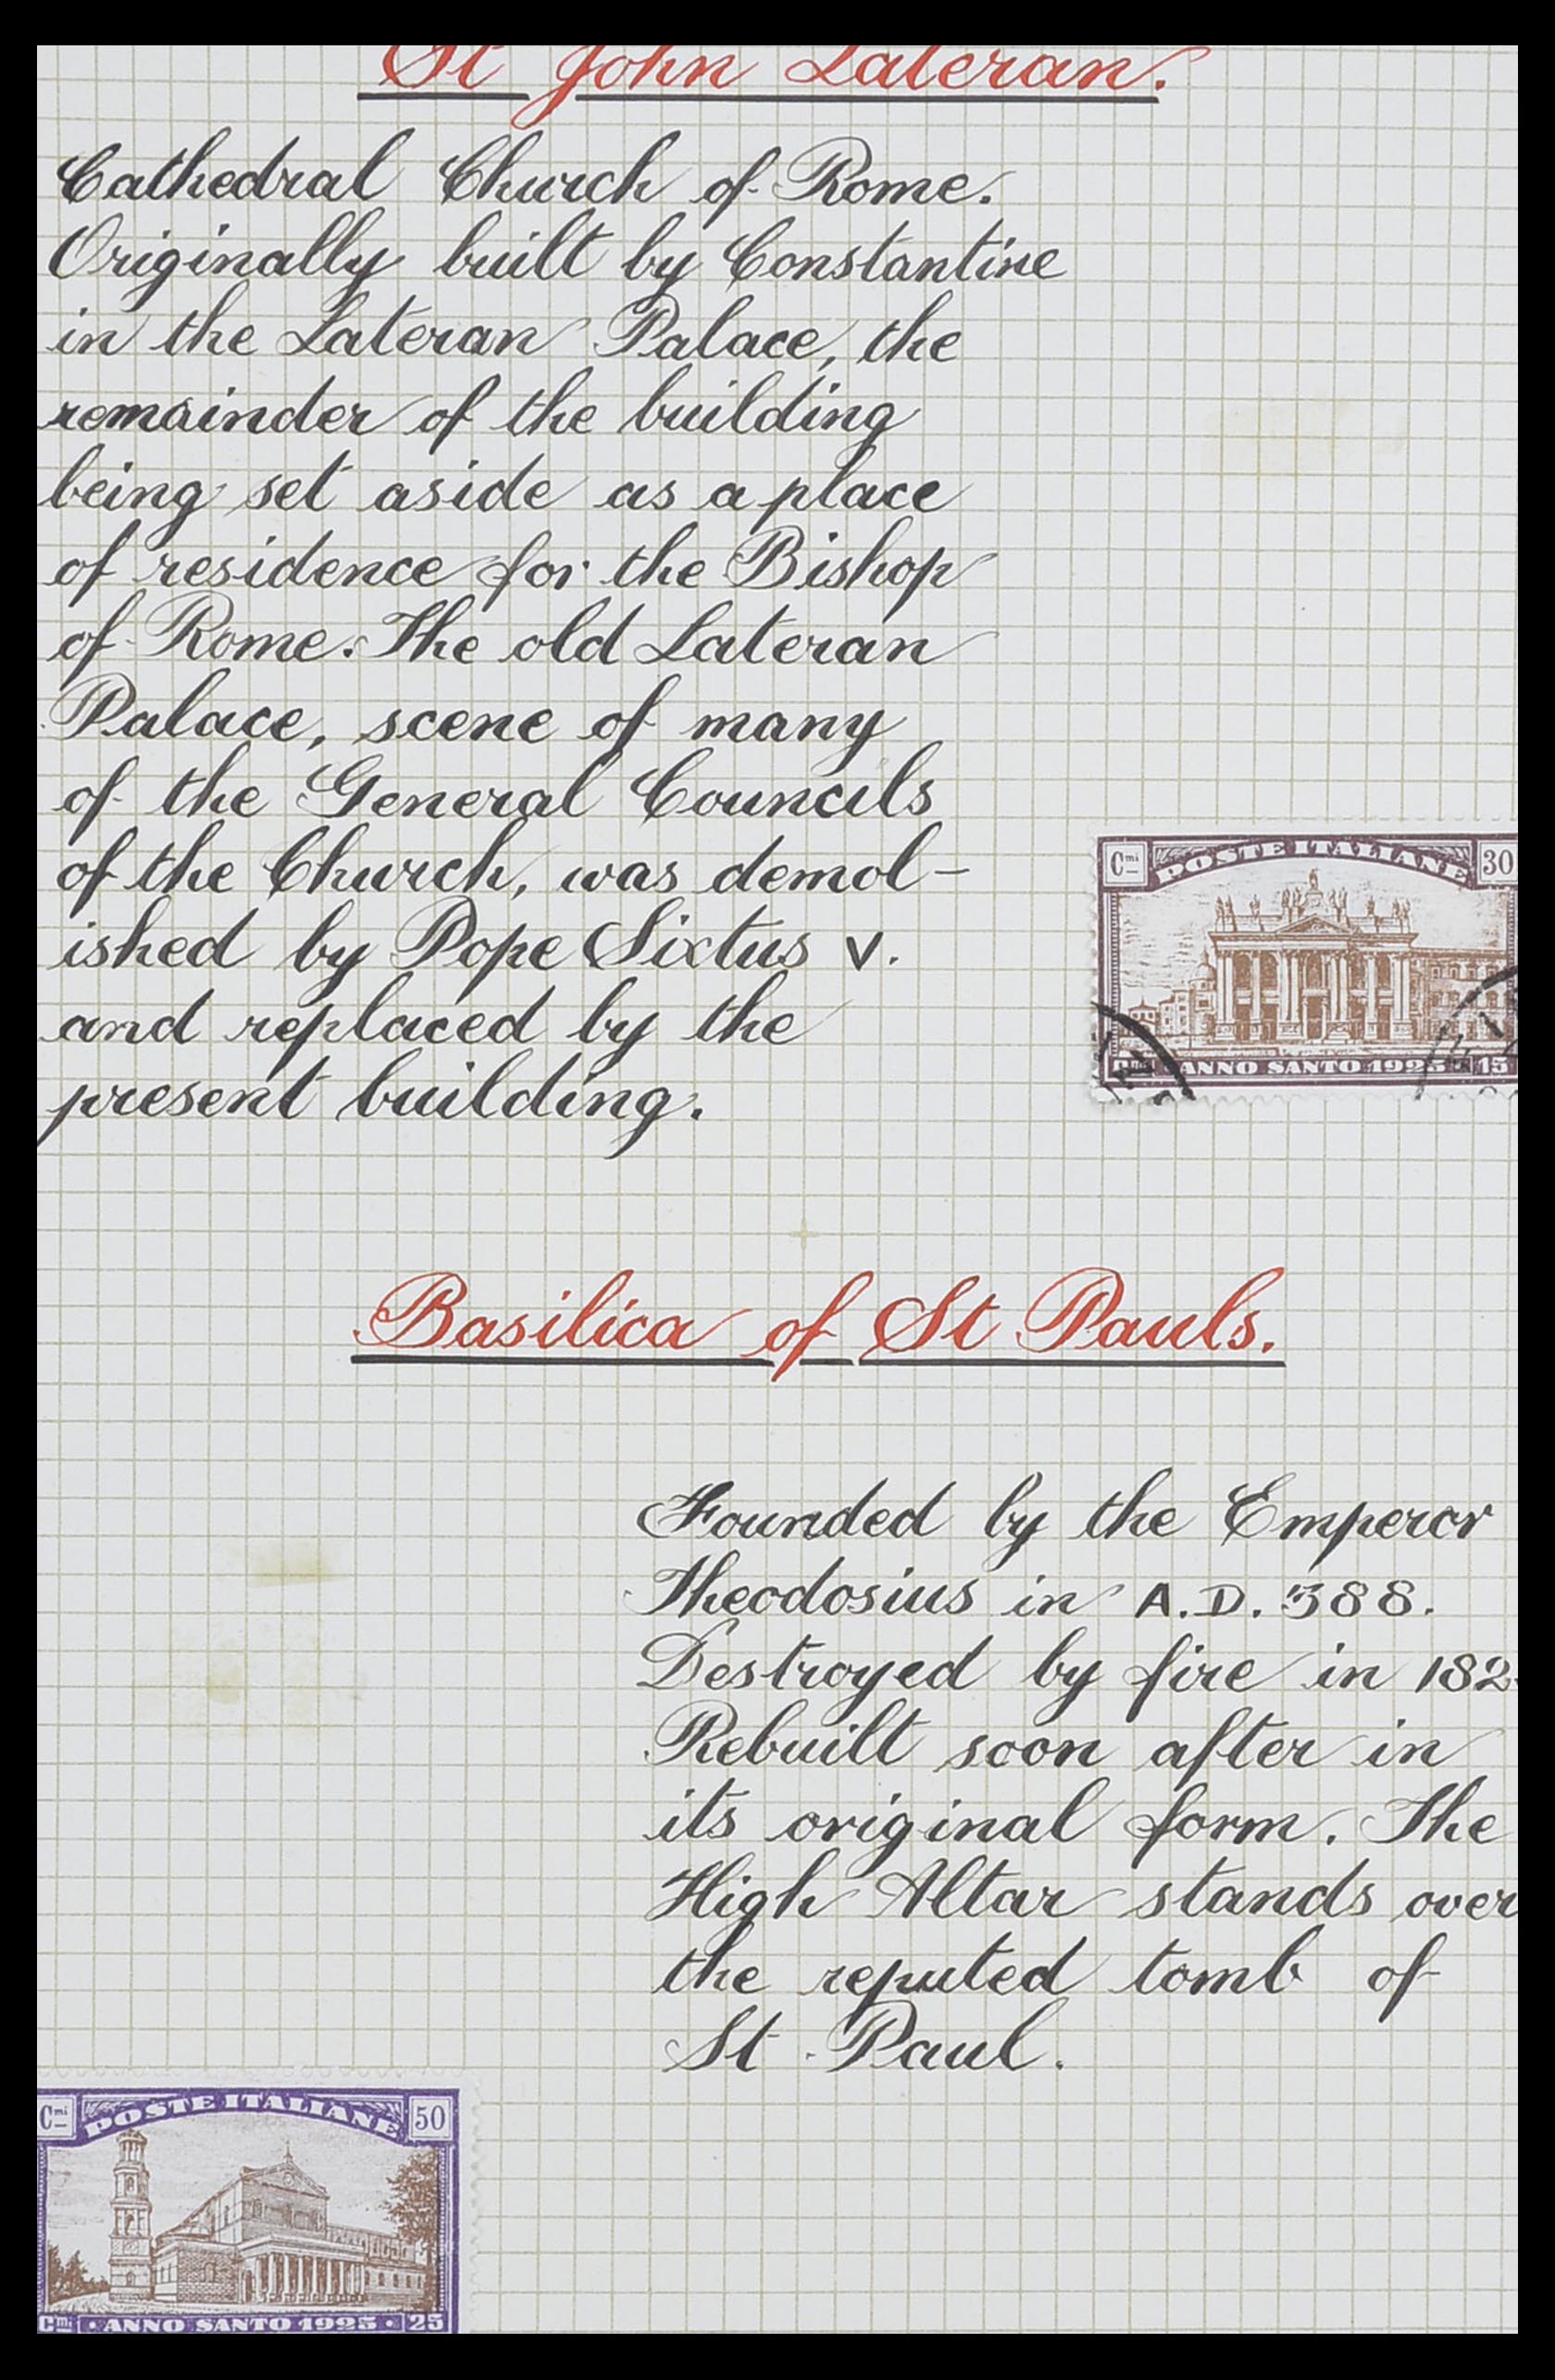 St John Lateran.
Cathedral Church of Rome.
Originally built by Constantine
in the Lateran Palace, the
remainder of the building
being set aside as a place
of residence for the Bishop
of Rome. The old Lateran
Palace, scene of many
of the General Councils
of the Church, was demol-
ished by Pope Sixtus V.
and replaced by the
present building.
Cmi POSTE ITALIANE 30
Cmi ANNO SANTO 1925 15
Basilica of St Pauls.
Founded by the Emperor
Theodosius in A.D. 388.
Destroyed by fire in 182
Rebuilt soon after in
its original form. The
High Altar stands over
the reputed tomb of
St Paul.
Cmi POSTE ITALIANE 50
Cmi • ANNO SANTO 1925 • 25